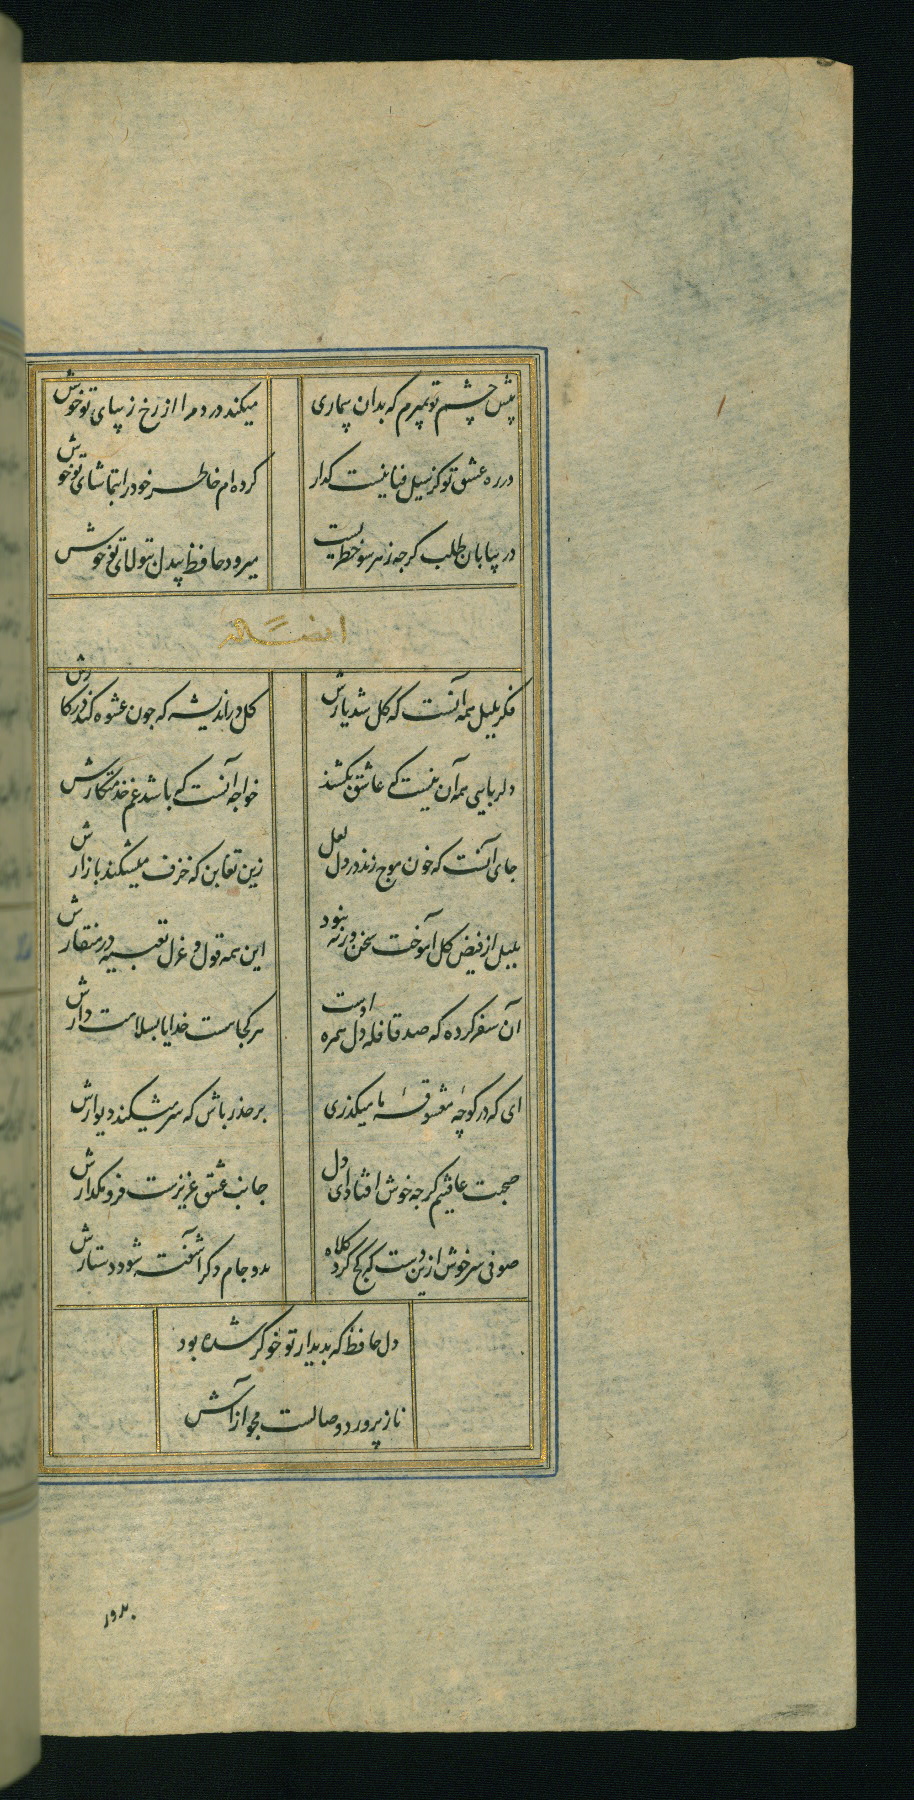 پیش چشم تو بمیرم که بدان بیماری
میکند درد مرا از رخ زیبای تو خوش
در ره عشق تو کز سیل فنا نیست کدار
کرده ام خاطر خود را بتماشای تو خوش
در بیابان طلب کرچه ز هر سو خطریست
میرود حافظ بیدل بتولای تو خوش
ایضاً له
فکر بلبل همه آنست که کل شد یارش
کل در اندیشه که چون عشوه کند در کارش
دلربایی همه آن نیست که عاشق بکشند
خواجه آنست که باشد غم خدمتکارش
جای آنست که خون موج زند در دل لعل
زین تغابن که خزف میشکند بازارش
بلبل از فیض کل آموخت سخن ورنه نبود
این همه قول و غزل تعبیه در منقارش
آن سفر کرده که صد قافله دل همره اوست
هر کجا هست خدایا بسلامت دارش
ای که در کوچهٔ معشوقهٔ ما میکذری
بر حذر باش که سر میشکند دیوارش
صحبت عافیتم کرچه خوش افتاد ای دل
جانب عشق عزیزست فرو مکذارش
صوفی سرخوش ازین دست که کج کرد کلاه
بدو جام دکر آشفته شود دستارش
دل حافظ که بدیدار تو خوکر شده بود
ناز پرورد وصالست مجو آزارش
بدور